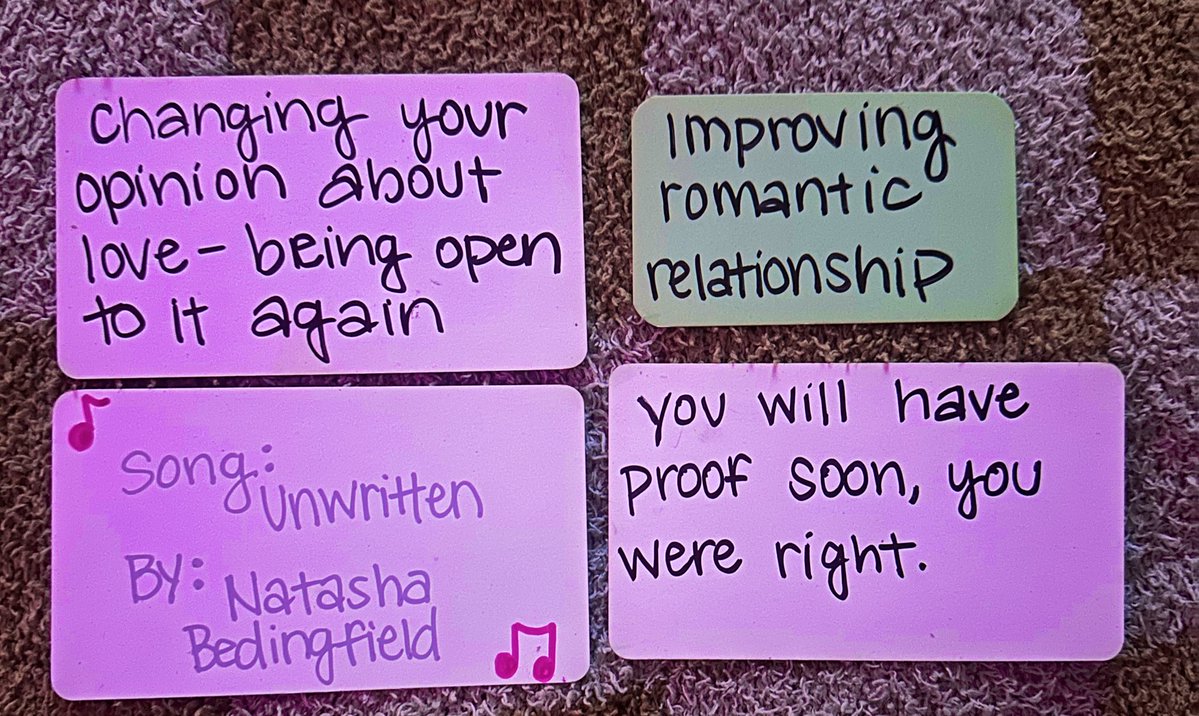 changing your
opinion about
love - being open
to it again
Improving
romantic
relationship
Song:
Unwritten
By: Natasha
Bedingfield
you will have
proof soon, you
were right.